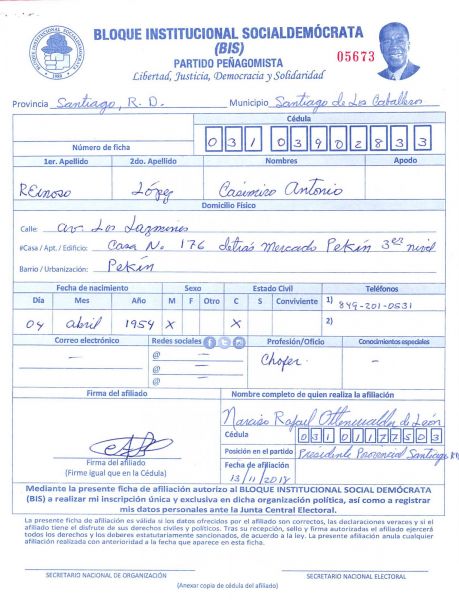 BLOQUE INSTITUCIONAL SOCIALDEMÓCRATA
(BIS)
PARTIDO PEÑAGOMISTA
Libertad, Justicia, Democracia y Solidaridad
05673
Provincia Santiago, R. D. Municipio Santiago de Los Caballeros
Cédula
Número de ficha 031 0390283 3
1er. Apellido 2do. Apellido Nombres Apodo
REinoso López Casimiro Antonio
Domicilio Físico
Calle: av. Los Lazmines
#Casa / Apt. / Edificio: Casa No. 176 detrás Mercado Pekín 3er nivel
Barrio / Urbanización: Pekín
Fecha de nacimiento Sexo Estado Civil Teléfonos
Día Mes Año M F Otro C S Conviviente 1) 849-201-0531
04 abril 1954 X X 2)
Correo electrónico Redes sociales Profesión/Oficio Conocimientos especiales
— @ — Chofer –
@ —
@ —
Firma del afiliado Nombre completo de quien realiza la afiliación
Narciso Rafael Ottenwalder de León
Cédula 03101177503
Firma del afiliado
(Firme igual que en la Cédula)
Posición en el partido Presidente Provincial Santiago
Fecha de afiliación
13/11/2018
Mediante la presente ficha de afiliación autorizo al BLOQUE INSTITUCIONAL SOCIAL DEMÓCRATA
(BIS) a realizar mi inscripción única y exclusiva en dicha organización política, así como a registrar
mis datos personales ante la Junta Central Electoral.
La presente ficha de afiliación es válida si los datos ofrecidos por el afiliado son correctos, las declaraciones veraces y si el
afiliado tiene el disfrute de sus derechos civiles y políticos. Tras su recepción, sello y firma autorizadas el afiliado ejercerá
todos los derechos y los deberes estatutariamente sancionados, de acuerdo a la ley. La presente afiliación anula cualquier
afiliación realizada con anterioridad a la fecha que aparece en esta ficha.
SECRETARIO NACIONAL DE ORGANIZACIÓN SECRETARIO NACIONAL ELECTORAL
(Anexar copia de cédula del afiliado)